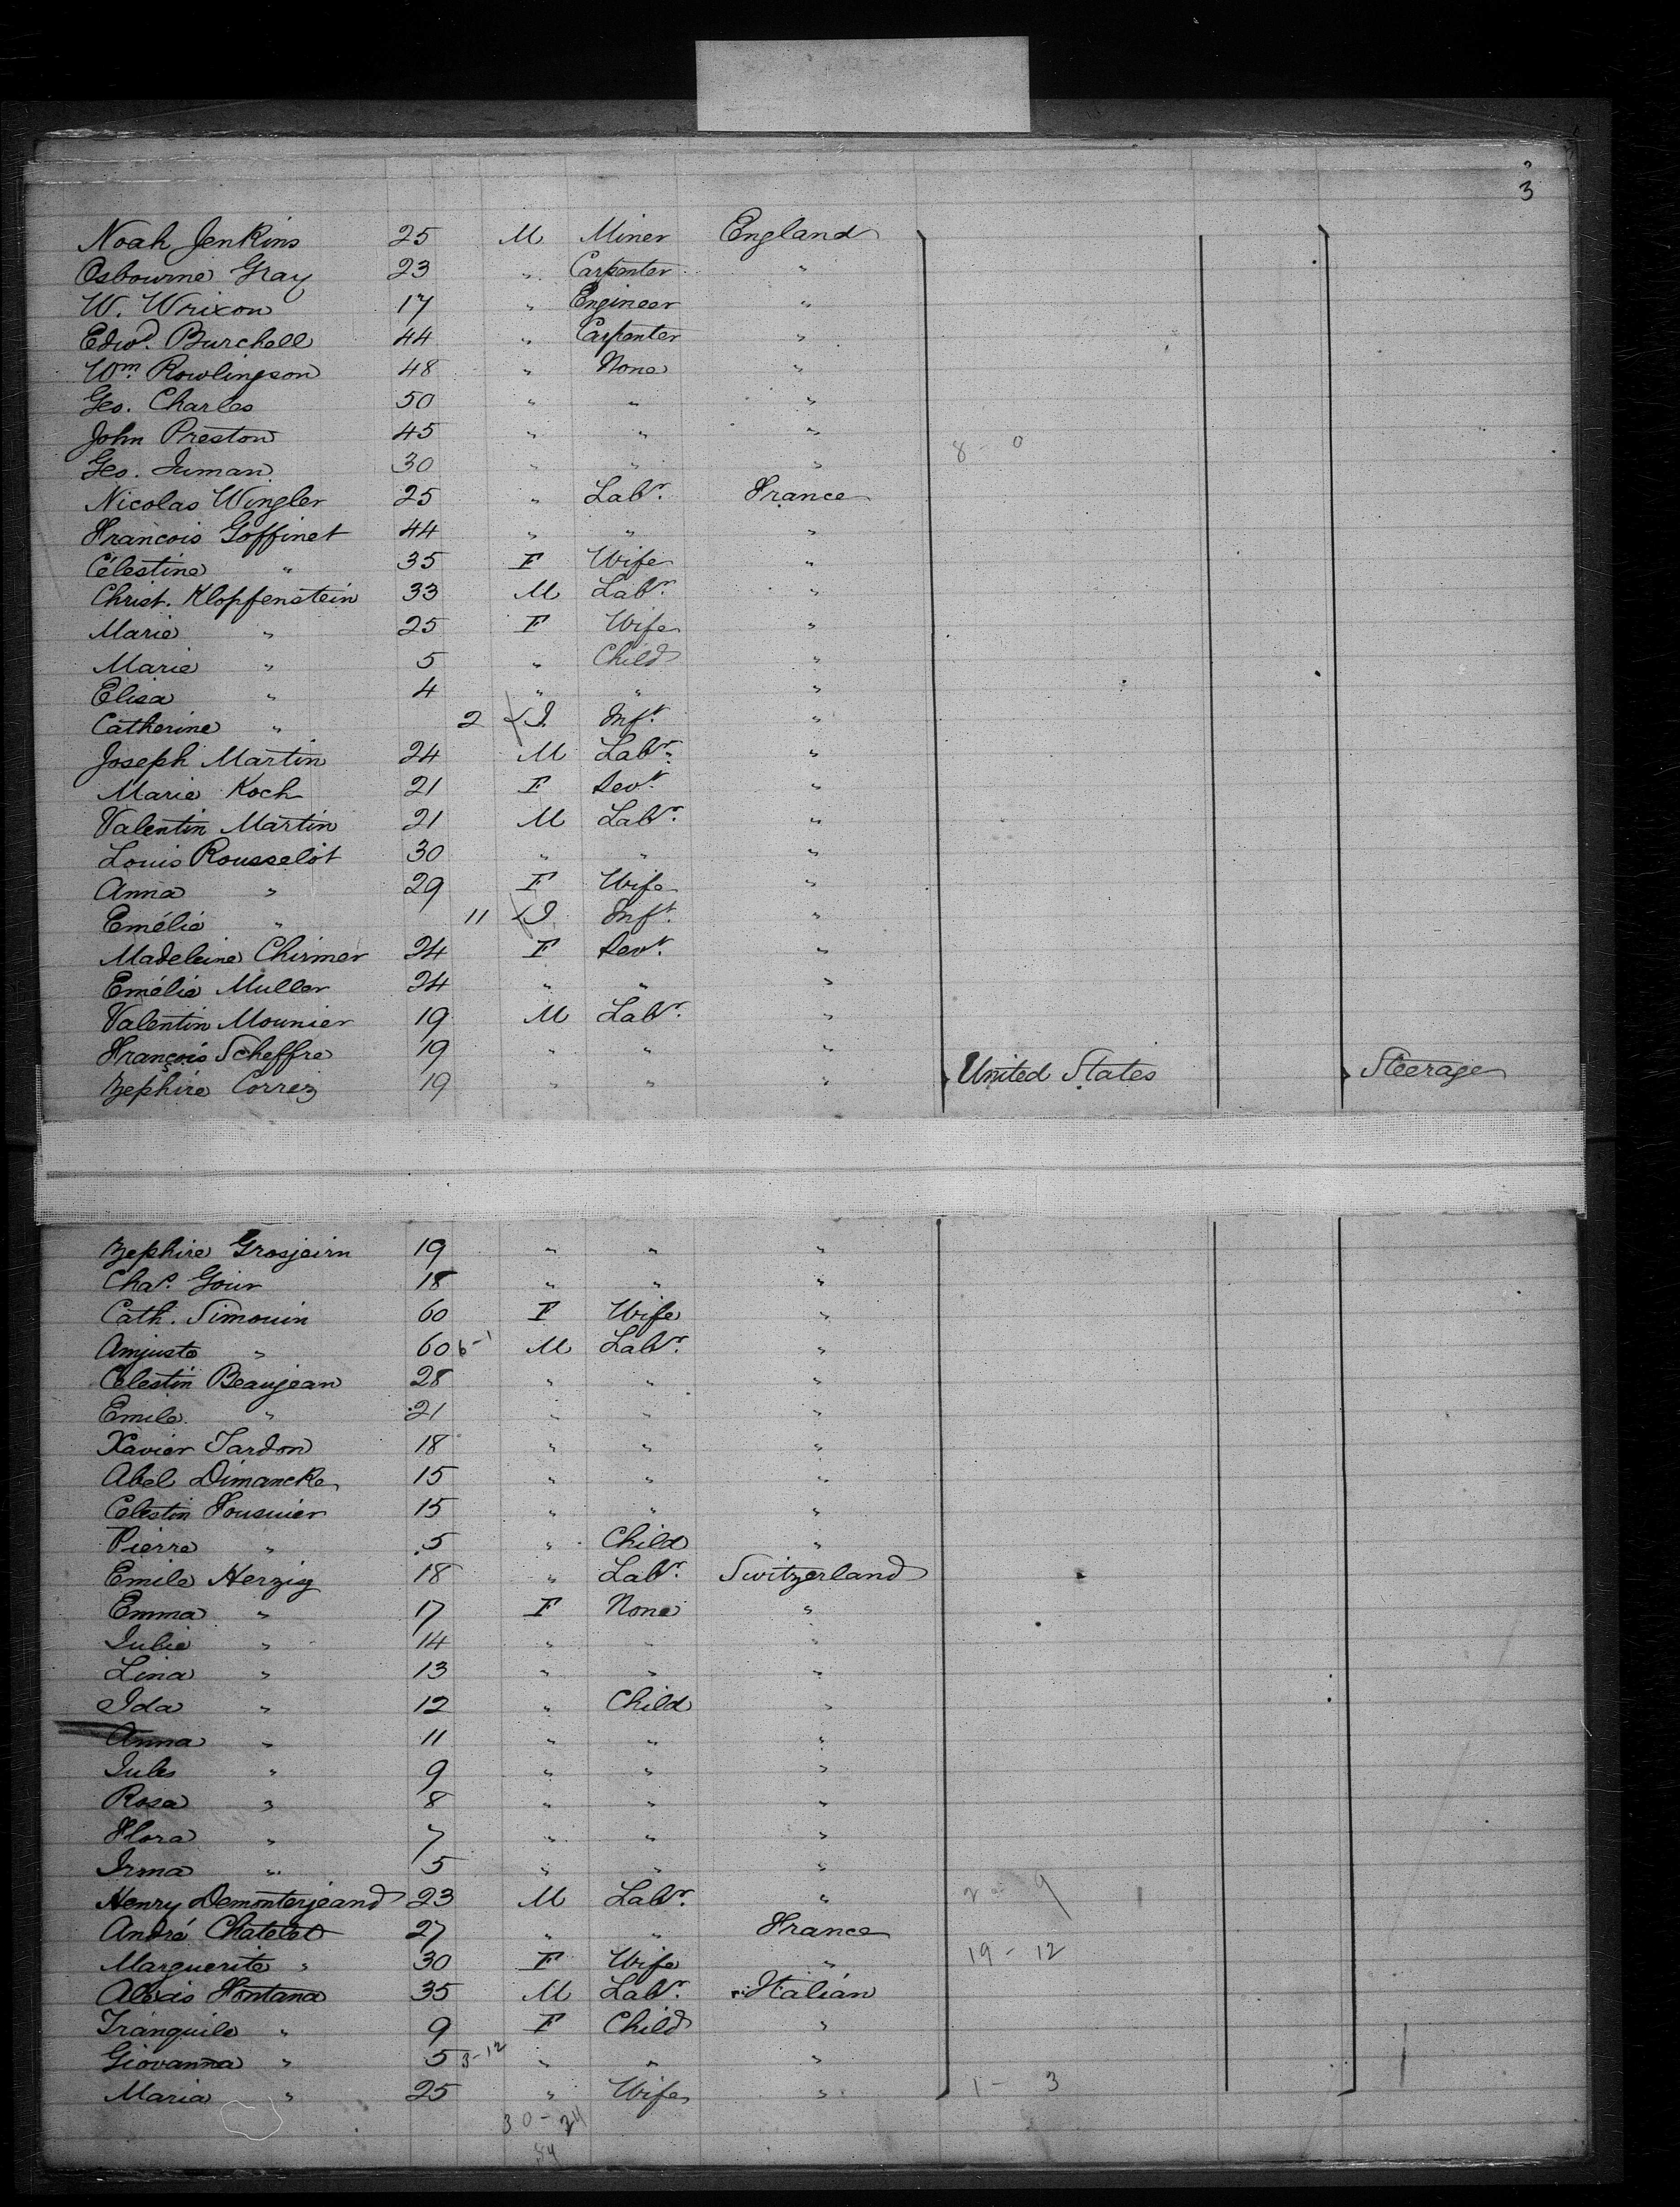 3
Noah Jenkins 25 M Miner England
Osbourne Gray 23 " Carpenter "
W. Wrixon 17 " Engineer "
Edwd. Burchell 44 " Carpenter "
Wm. Rowlingson 48 " None "
Geo. Charles 50 " " "
John Preston 45 " " " 8 - 0
Geo. Inman 30 " " "
Nicolas Wingler 25 " Labr. France
Francois Goffinet 44 " " "
Célestine " 35 F Wife "
Christ. Klopfenstein 33 M Labr. "
Marie " 25 F Wife "
Marie " 5 " Child "
Elisa " 4 " " "
Catherine " 2 Inft. "
Joseph Martin 24 M Labr. "
Marie Koch 21 F Sevt. "
Valentin Martin 21 M Labr. "
Louis Rousselot 30 " " "
Anna " 29 F Wife "
Emélie " 11 Inft. "
Madeleine Chirmer 24 F Sevt. "
Emélie Muller 24 " " "
Valentin Mounier 19 M Labr. "
François Scheffre 19 " " "
Zephire Correz 19 " " " United States Steerage
Zephire Grosjeirn 19 " " "
Chas. Gour 18 " " "
Cath. Simouin 60 F Wife "
" 60 6-1 M Labr. "
Celestin Beaujean 28 " " "
Emile " 21 " " "
Xavier Tardon 18 " " "
Abel Dimancke 15 " " "
Celestin Fousnier 15 " " "
Pierre " 5 " Child "
Emile Herzig 18 " Labr. Switzerland
Emma " 17 F None "
Julie " 14 " " "
Lina " 13 " " "
Ida " 12 " Child "
Anna " 11 " " "
Jules " 9 " " "
Rosa " 8 " " "
Flora " 7 " " "
Irma " 5 " " "
Henry Demonterjeand 23 M Labr. " 2 9
André Chatelet 27 " " France
Marguerite " 30 F Wife " 19 - 12
Alexis Fontana 35 M Labr. Italian
Tranquile " 9 F Child "
Giovanna " 5 3-12 " " "
Maria " 25 " Wife " 1 - 3
30 - 24
54